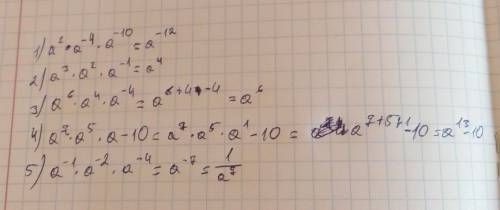 1) a² · a⁻⁴ · a⁻¹⁰ = a⁻¹²
2) a³ · a² · a⁻¹ = a⁴
3) a⁶ · a⁴ · a⁻⁴ = a⁶⁺⁴⁻⁴ = a⁶
4) a⁷ · a⁵ · a - 10 = a⁷ · a⁵ · a¹ - 10 = a⁷⁺⁵⁺¹ - 10 = a¹³ - 10
5) a⁻¹ · a⁻² · a⁻⁴ = a⁻⁷ = 1/a⁷